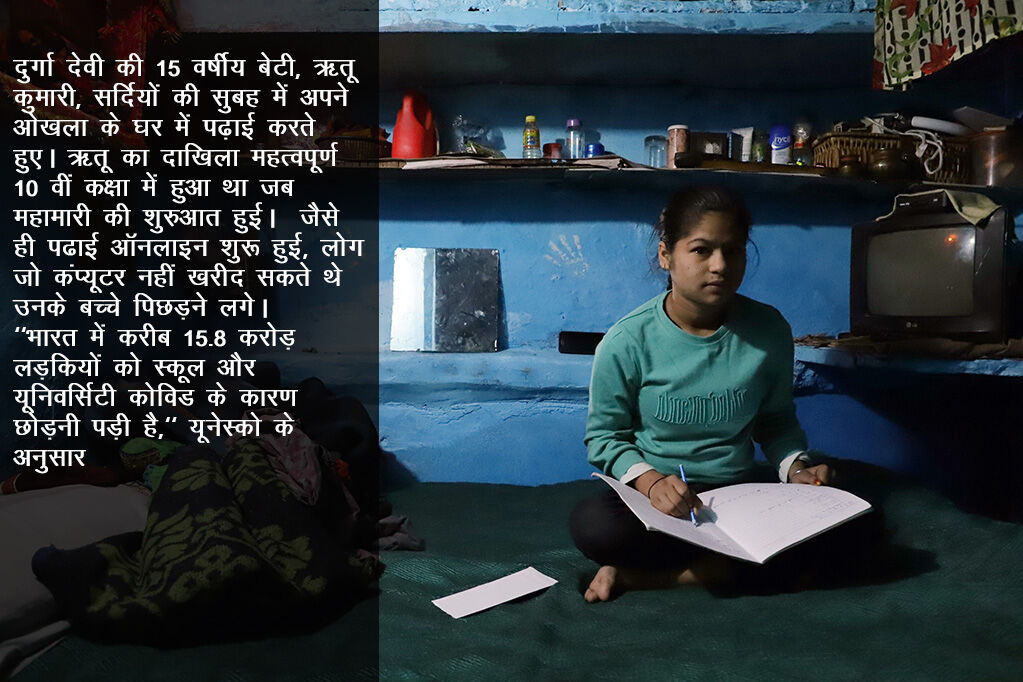 दुर्गा देवी की 15 वर्षीय बेटी, ऋतू
कुमारी, सर्दियों की सुबह में अपने
ओखला के घर में पढ़ाई करते
हुए। ऋतू का दाखिला महत्वपूर्ण
10 वीं कक्षा में हुआ था जब
महामारी की शुरुआत हुई। जैसे
ही पढ़ाई ऑनलाइन शुरू हुई, लोग
जो कंप्यूटर नहीं खरीद सकते थे
उनके बच्चे पिछड़ने लगे।
“भारत में करीब 15.8 करोड़
लड़कियों को स्कूल और
यूनिवर्सिटी कोविड के कारण
छोड़नी पड़ी है,“ यूनेस्को के
अनुसार
nycil
LG